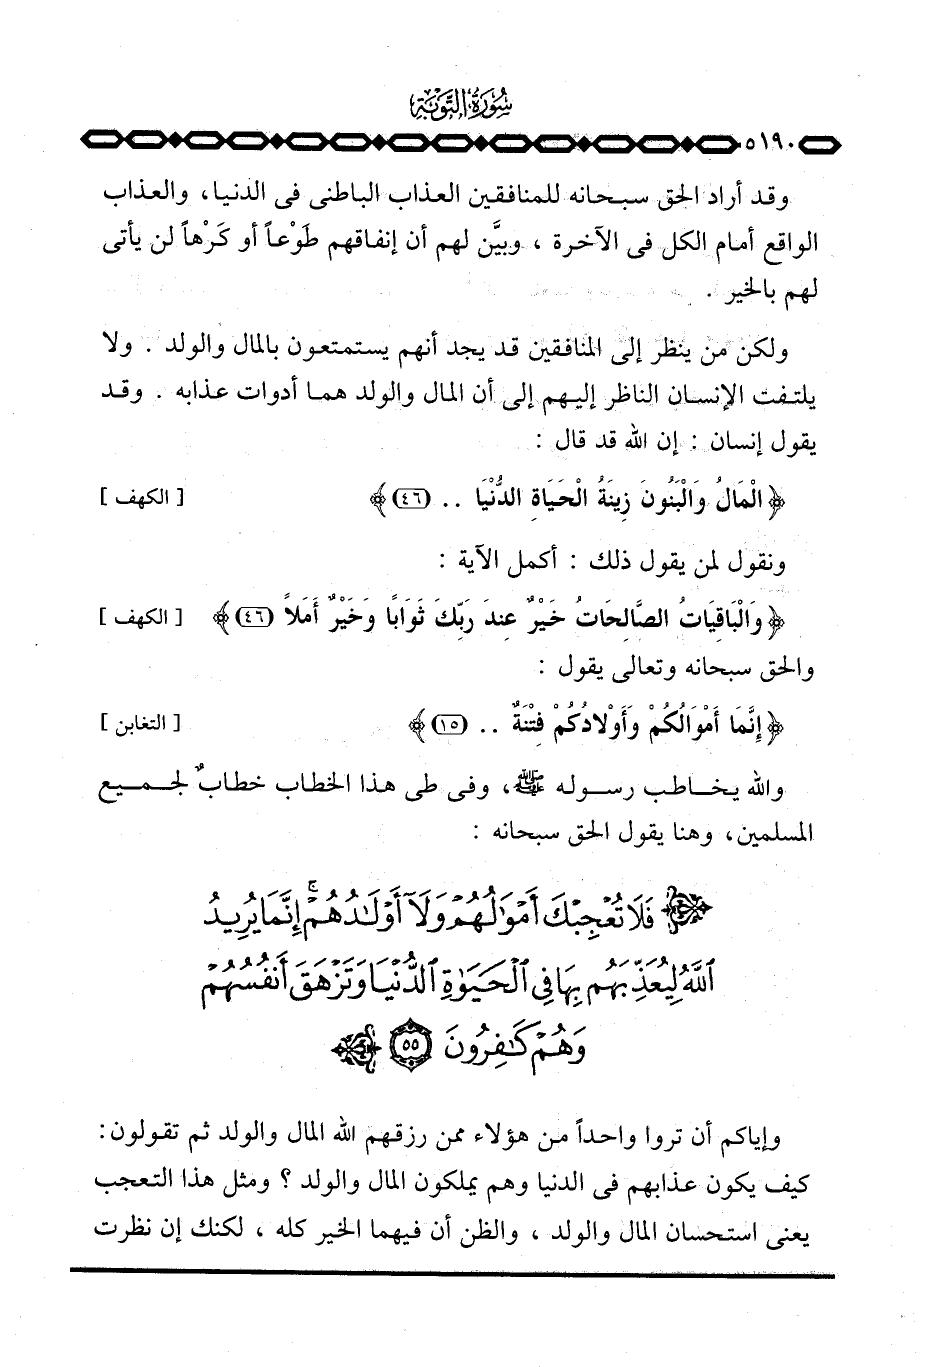 سُورَةُ التَّوْبَةِ
٥١٩٠
وقد أراد الحق سبحانه للمنافقين العذاب الباطنى فى الدنيا، والعذاب
الواقع أمام الكل فى الآخرة ، وبيَّن لهم أن إنفاقهم طَوْعاً أو كَرْهاً لن يأتى
لهم بالخير .
ولكن من ينظر إلى المنافقين قد يجد أنهم يستمتعون بالمال والولد . ولا
يلتفت الإنسان الناظر إليهم إلى أن المال والولد هما أدوات عذابه . وقد
يقول إنسان : إن الله قد قال :
﴿ الْمَالُ وَالْبَنُونَ زِينَةُ الْحَيَاةِ الدُّنْيَا .. (٤٦) ﴾ [ الكهف ]
ونقول لمن يقول ذلك : أكمل الآية :
﴿ وَالْبَاقِيَاتُ الصَّالِحَاتُ خَيْرٌ عِندَ رَبِّكَ ثَوَابًا وَخَيْرٌ أَمَلاً (٤٦) ﴾ [ الكهف ]
والحق سبحانه وتعالى يقول :
﴿ إِنَّمَا أَمْوَالُكُمْ وَأَوْلادُكُمْ فِتْنَةٌ .. (١٥) ﴾ [ التغابن ]
والله يخاطب رسوله ﷺ، وفى طى هذا الخطاب خطابٌ لجميع
المسلمين، وهنا يقول الحق سبحانه :
﴿ فَلَا تُعْجِبْكَ أَمْوَٰلُهُمْ وَلَآ أَوْلَٰدُهُمْ ۚ إِنَّمَا يُرِيدُ
ٱللَّهُ لِيُعَذِّبَهُم بِهَا فِي ٱلْحَيَوٰةِ ٱلدُّنْيَا وَتَزْهَقَ أَنفُسُهُمْ
وَهُمْ كَٰفِرُونَ ٥٥ ﴾
وإياكم أن تروا واحداً من هؤلاء ممن رزقهم الله المال والولد ثم تقولون:
كيف يكون عذابهم فى الدنيا وهم يملكون المال والولد ؟ ومثل هذا التعجب
يعنى استحسان المال والولد ، والظن أن فيهما الخير كله ، لكنك إن نظرت